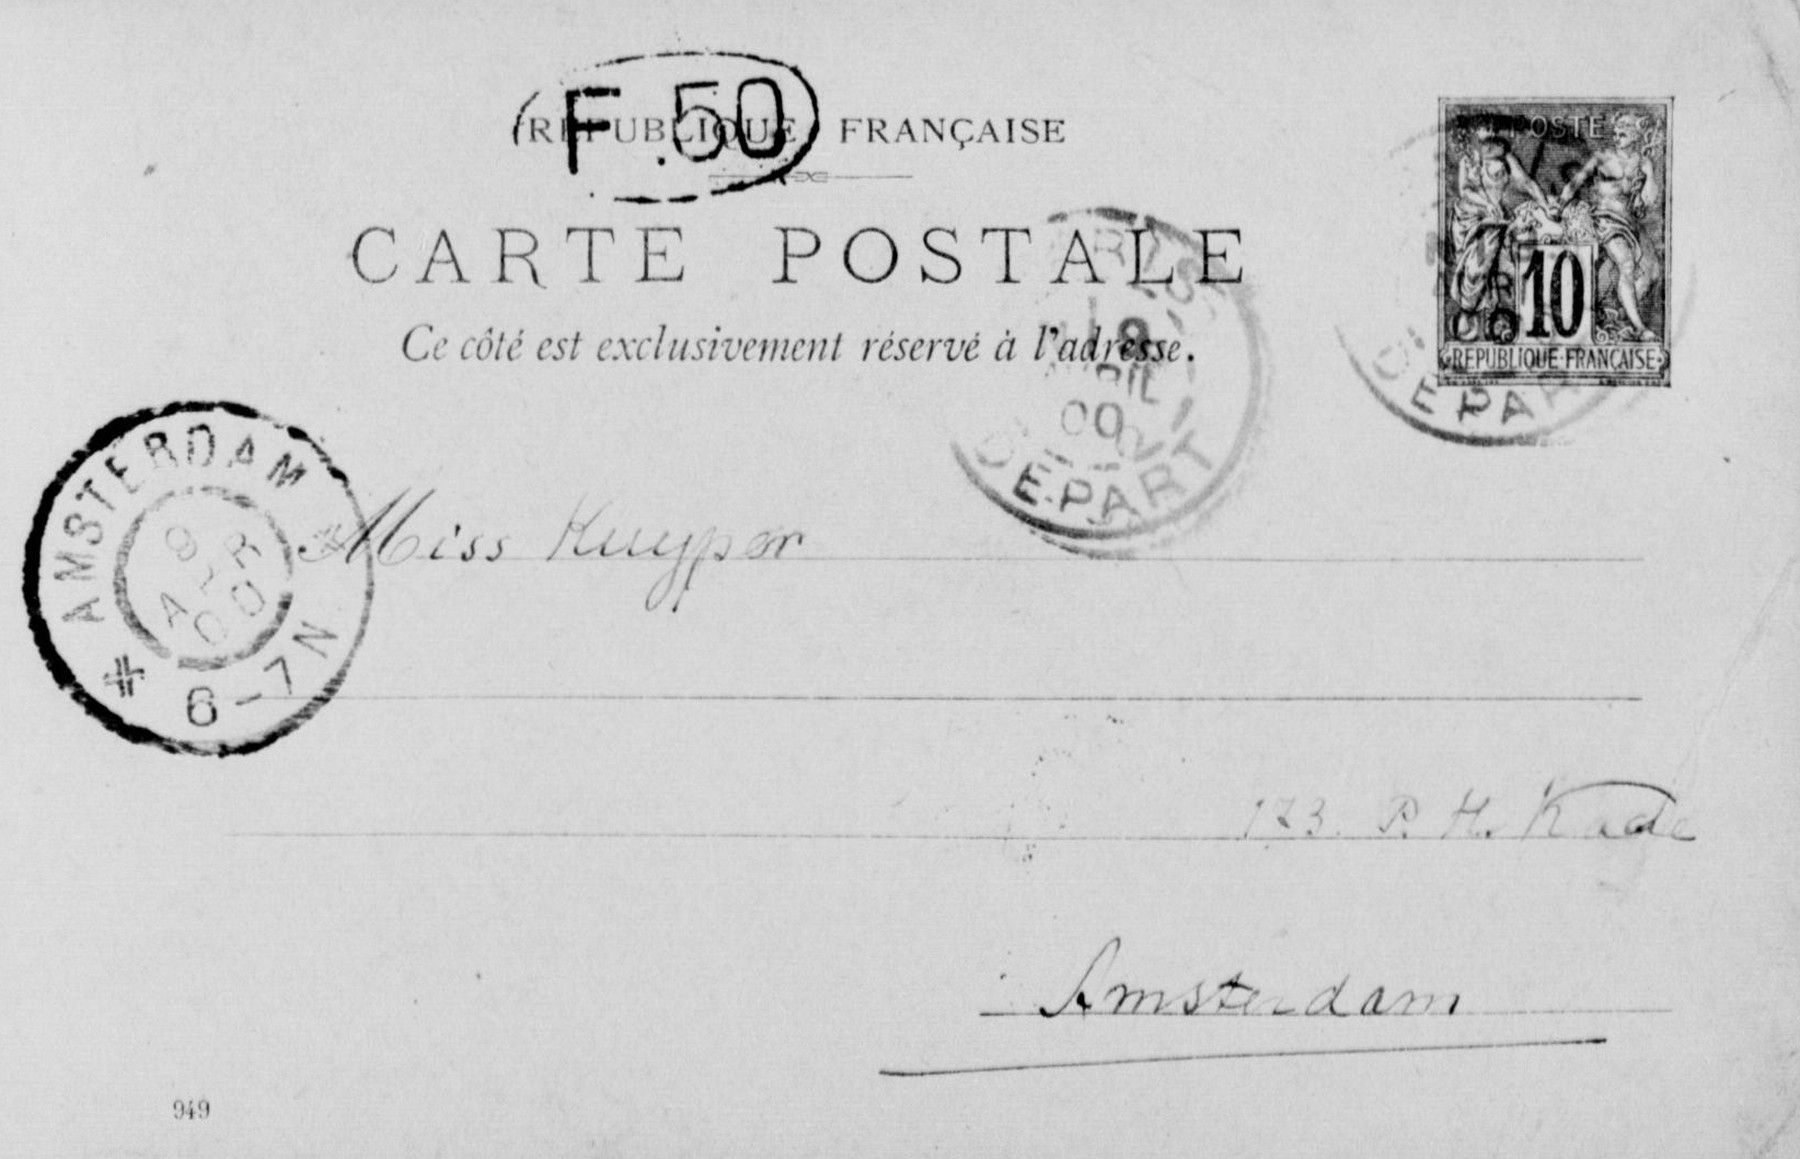 F.50
RÉPUBLIQUE FRANÇAISE
CARTE POSTALE
Ce côté est exclusivement réservé à l'adresse.
POSTE
10
REPUBLIQUE FRANÇAISE
DEPART
9
AVRIL
00
DEPART
AMSTERDAM
9 APR
00
6-7N
Miss Kuyper
173. P. H. Kade
Amsterdam
949